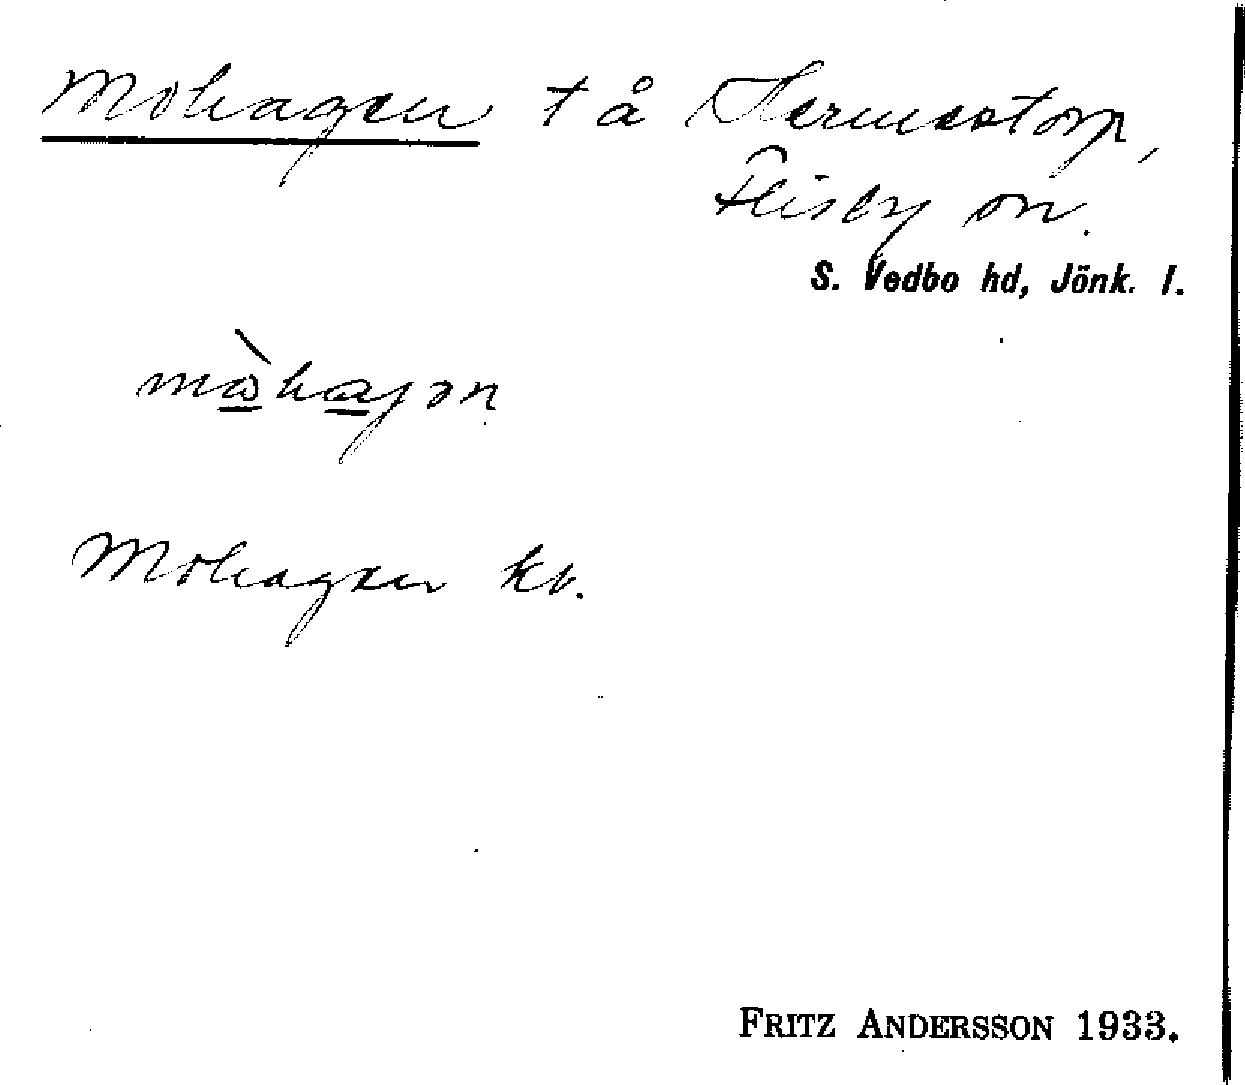 Mohagen t å Hermestorp,
Flisby sn.
S. Vedbo hd, Jönk. l.
Mohagen kv.
FRITZ ANDERSSON 1933.